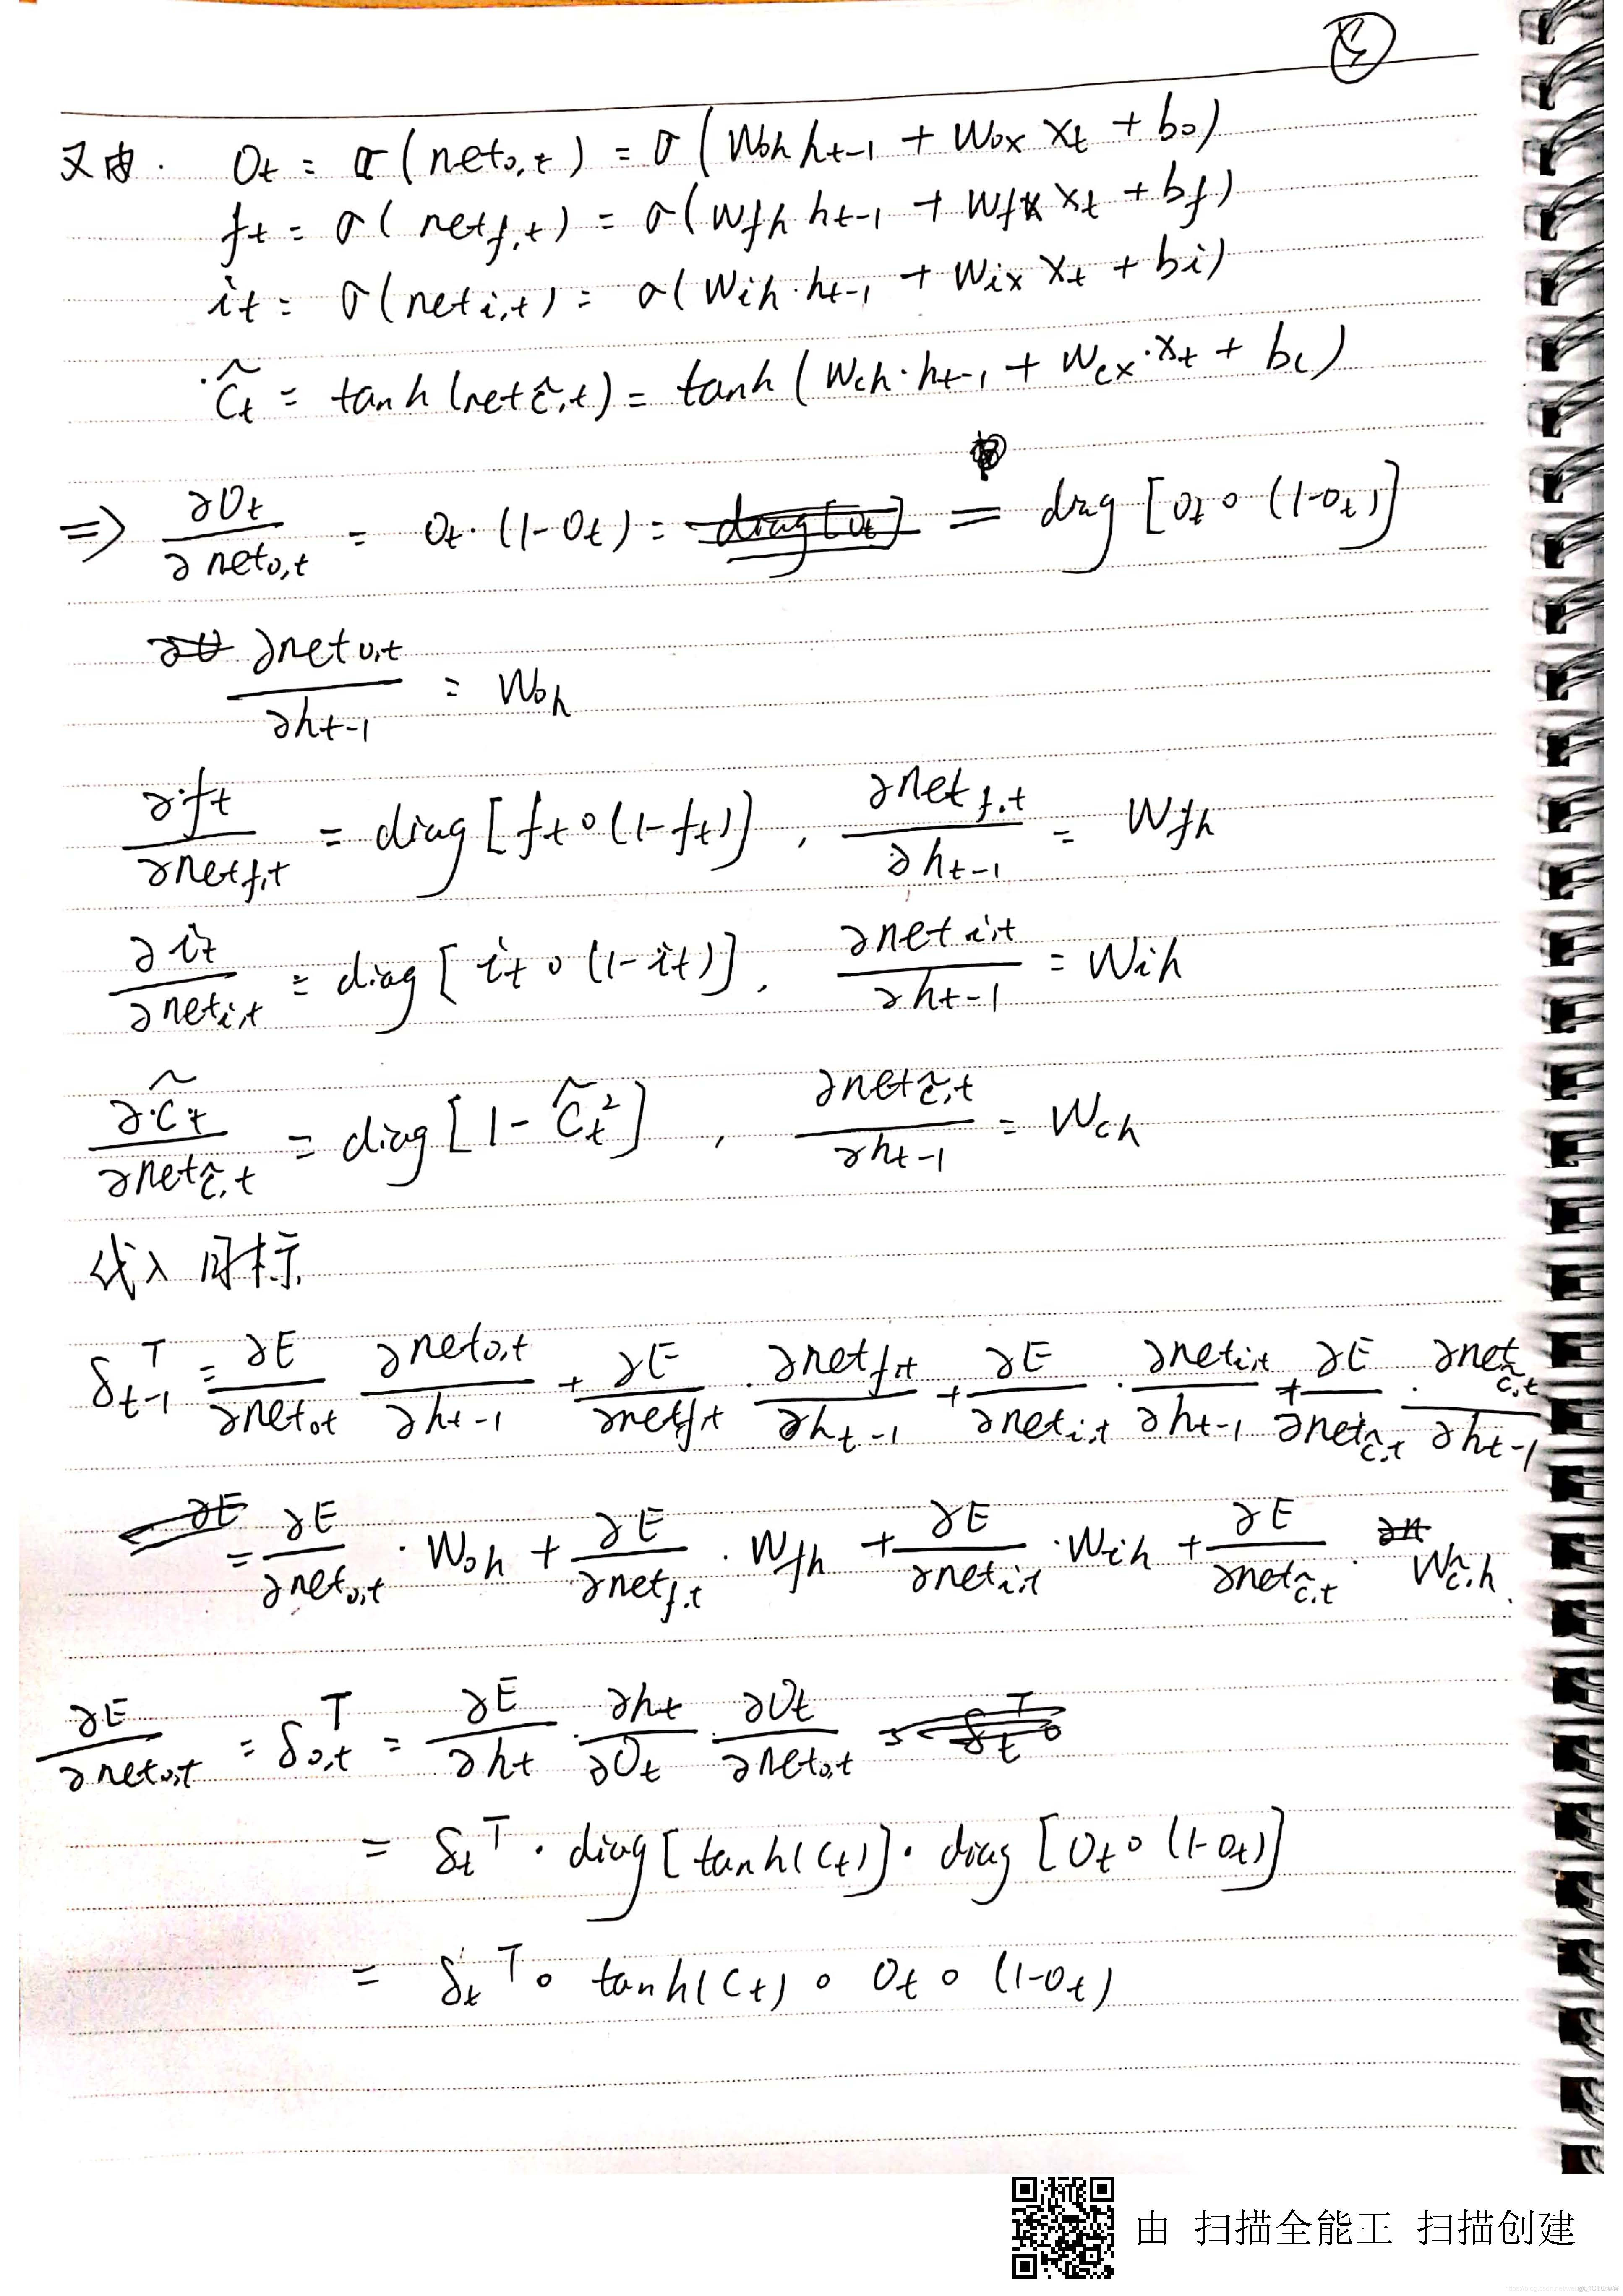 ⑤
又由. O_t = σ(net_{o,t}) = σ(W_{oh} h_{t-1} + W_{ox} x_t + b_o)
f_t = σ(net_{f,t}) = σ(W_{fh} h_{t-1} + W_{fx} x_t + b_f)
i_t = σ(net_{i,t}) = σ(W_{ih}·h_{t-1} + W_{ix} x_t + b_i)
\tilde{C}_t = tanh(net_{\tilde{c},t}) = tanh(W_{ch}·h_{t-1} + W_{cx}·x_t + b_c)
⇒ ∂O_t/∂net_{o,t} = O_t·(1-O_t) = = diag[O_t∘(1-O_t)]
∂net_{o,t}/∂h_{t-1} = W_{oh}
∂f_t/∂net_{f,t} = diag[f_t∘(1-f_t)], ∂net_{f,t}/∂h_{t-1} = W_{fh}
∂i_t/∂net_{i,t} = diag[i_t∘(1-i_t)], ∂net_{i,t}/∂h_{t-1} = W_{ih}
∂\tilde{C}_t/∂net_{\tilde{c},t} = diag[1-\tilde{C}_t^2], ∂net_{\tilde{c},t}/∂h_{t-1} = W_{ch}
代入目标
δ_{t-1}^T = ∂E/∂net_{o,t} ∂net_{o,t}/∂h_{t-1} + ∂E/∂net_{f,t}·∂net_{f,t}/∂h_{t-1} + ∂E/∂net_{i,t}·∂net_{i,t}/∂h_{t-1} + ∂E/∂net_{\tilde{c},t}·∂net_{\tilde{c},t}/∂h_{t-1}
= ∂E/∂net_{o,t}·W_{oh} + ∂E/∂net_{f,t}·W_{fh} + ∂E/∂net_{i,t}·W_{ih} + ∂E/∂net_{\tilde{c},t}·W_{\tilde{c},h}
∂E/∂net_{o,t} = δ_{o,t}^T = ∂E/∂h_t·∂h_t/∂O_t·∂O_t/∂net_{o,t}
= δ_t^T·diag[tanh(C_t)]·diag[O_t∘(1-O_t)]
= δ_t^T∘tanh(C_t)∘O_t∘(1-O_t)
由 扫描全能王 扫描创建